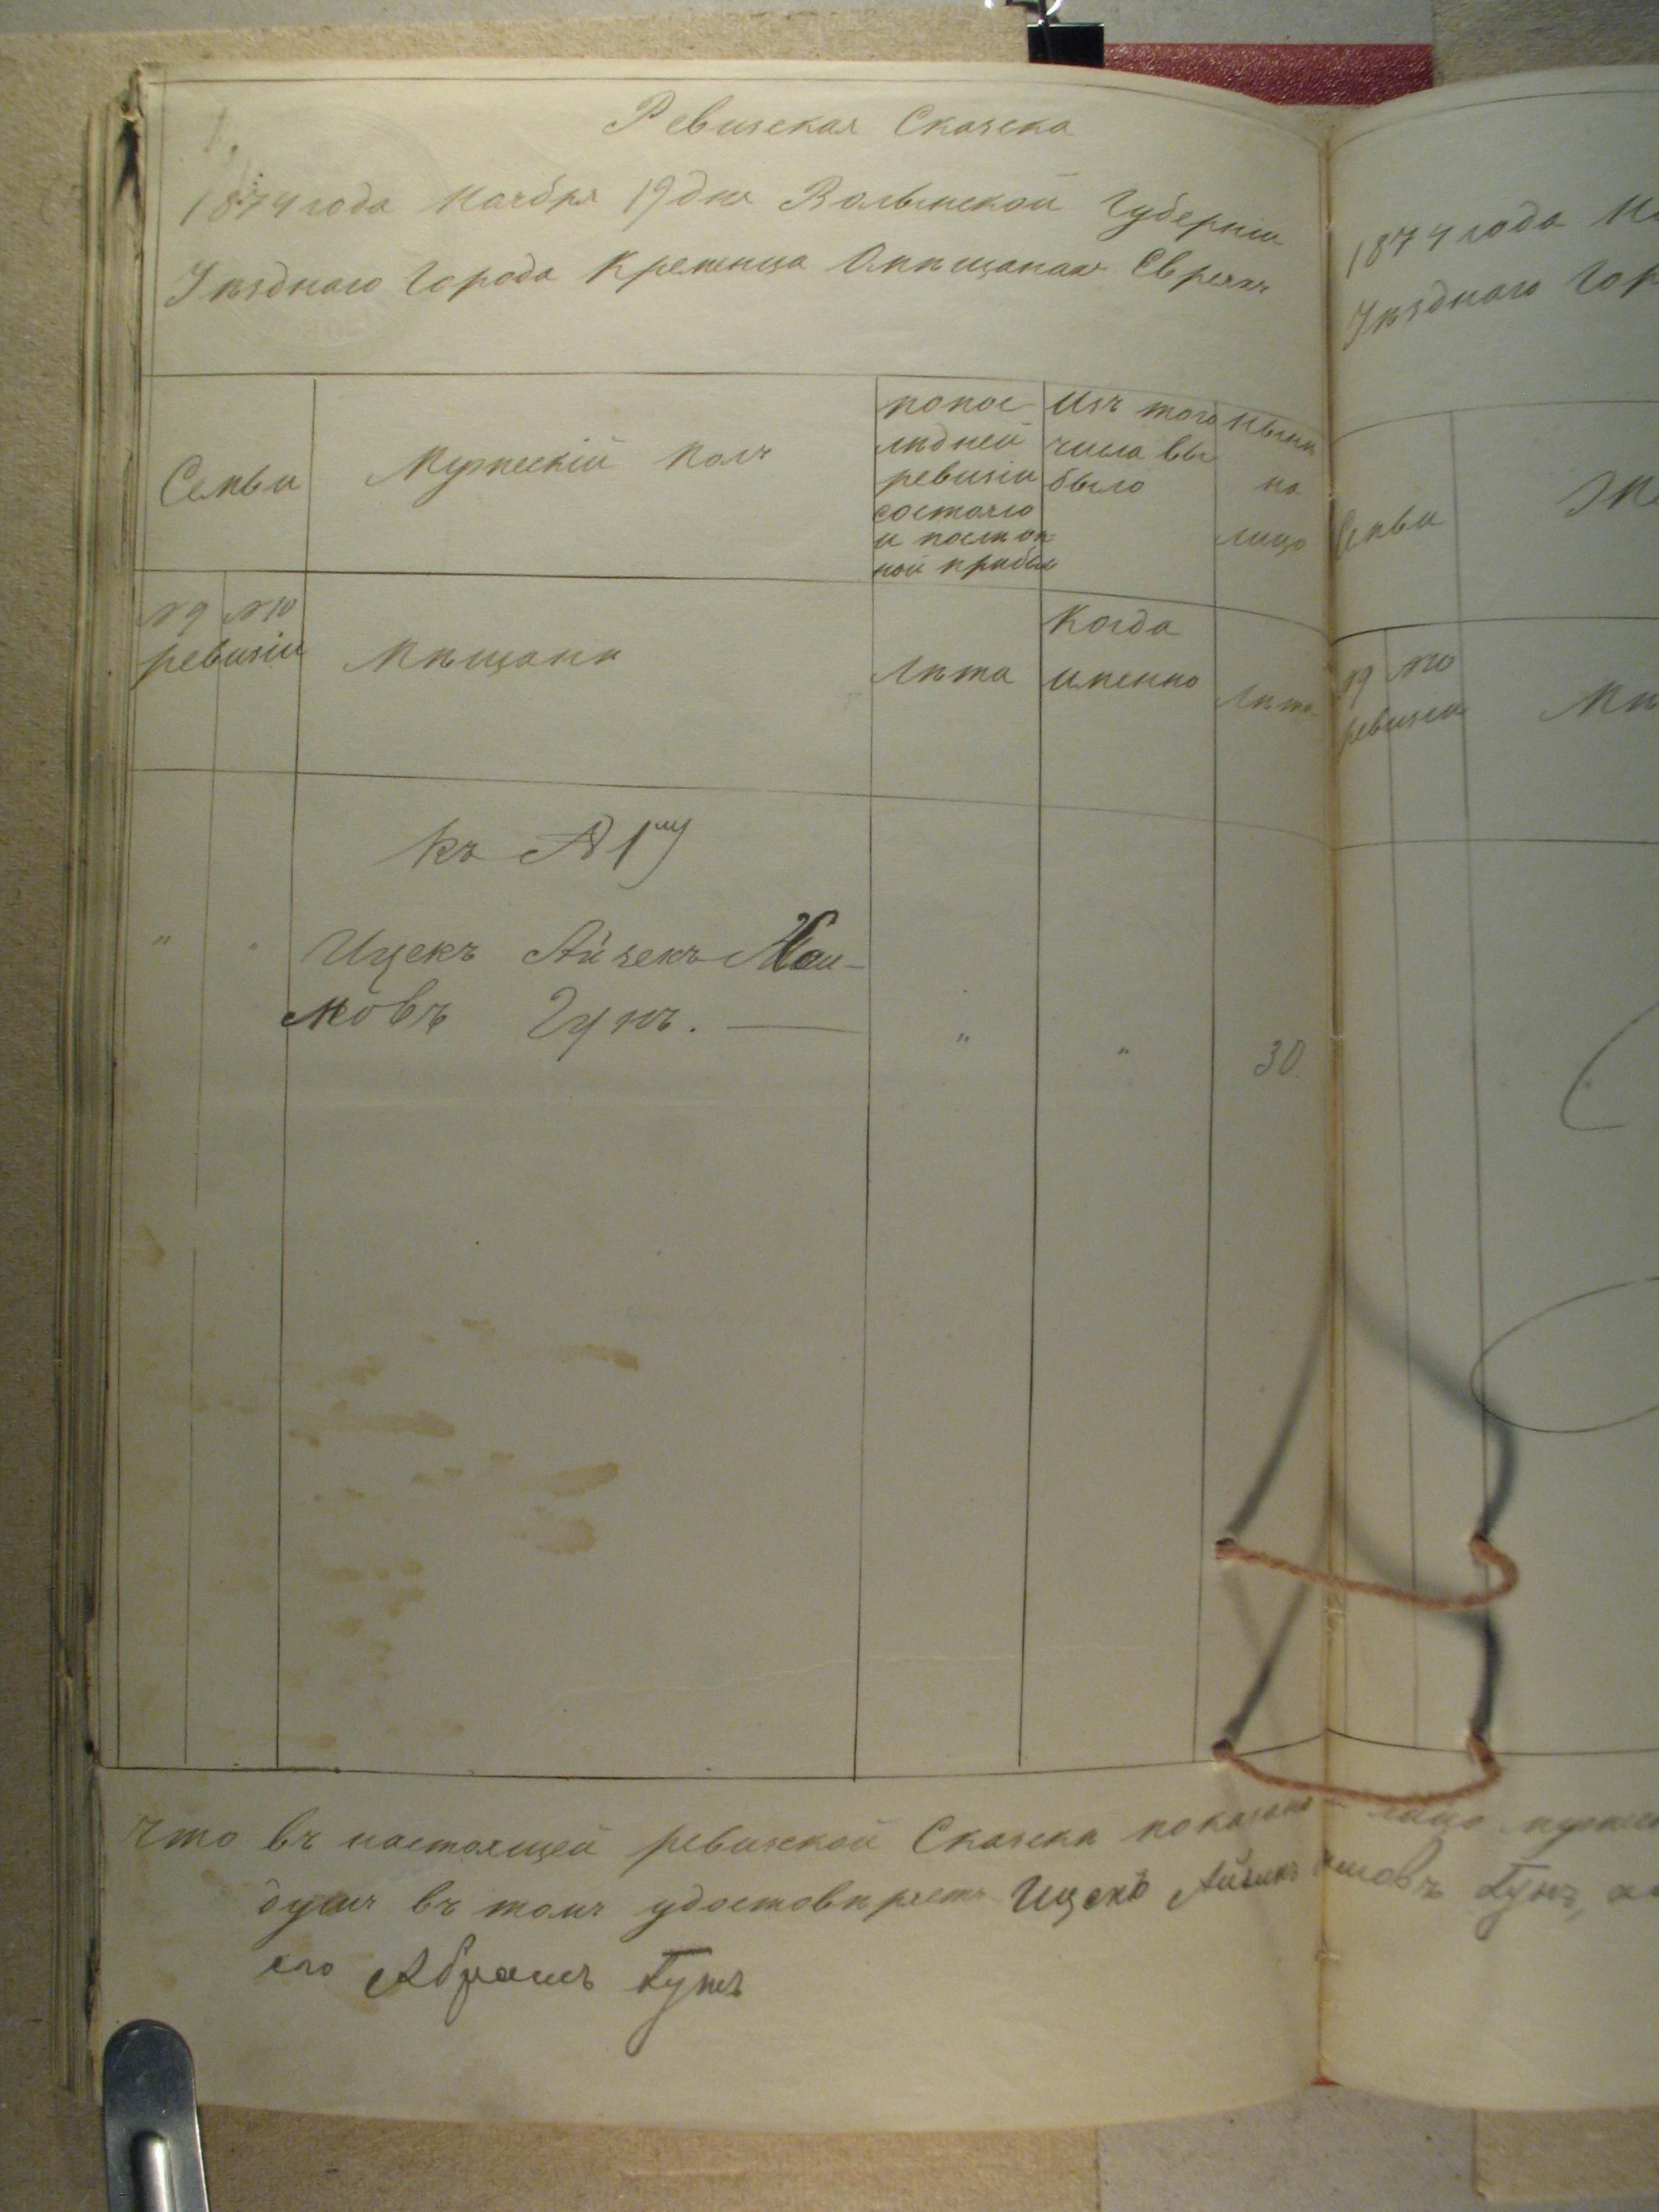 Ревизская Сказска
1874 года Ноября 19 дня Волынской Губерніи
Уѣзднаго Города Кременца О мѣщанахъ Евреяхъ
Семьи
Мужескій полъ
по пос-
лѣдней
ревизіи
состояло
и послѣ о-
ной прибыло
Изъ того
числа вы
было
Нынѣ
на
лицо
№ 9 № 10
ревизіи
Мѣщани
Лѣта
Когда
именно
Лѣта
Къ № 1му
" "
Ицекъ Айзекъ Хаи-
мовъ Гунъ. —
" "
30.
Что въ настоящей ревизской Сказскѣ показано лицо
душъ въ томъ удостовѣряетъ Ицекъ Айзикъ Гунъ, а
его Абрамъ Гунъ
1874 года Но
Уѣзднаго Гор
Семьи
Же
№ 9 № 10
ревизіи
Мѣ